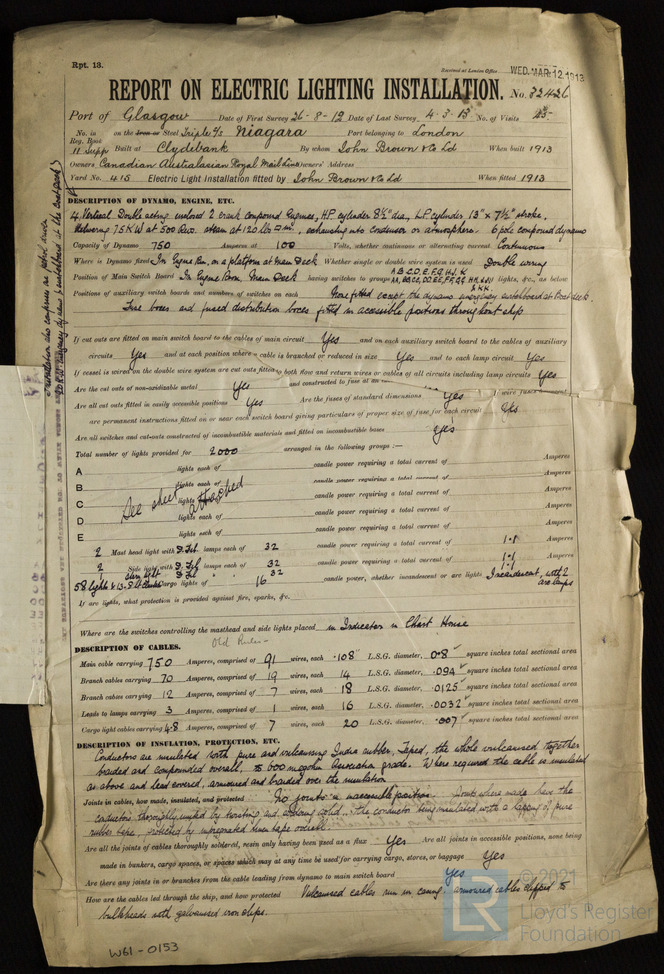 Rpt. 13.
Received at London Office WED. MAR. 12 1913
REPORT ON ELECTRIC LIGHTING INSTALLATION. No. 32426
Port of Glasgow Date of First Survey 26-8-12 Date of Last Survey 4.3.13 No. of Visits 25
No. in Reg. Book 11 Supp on the Iron or Steel Triple S/S Niagara Port belonging to London
Built at Clydebank By whom John Brown & Co Ld When built 1913
Owners Canadian Australasian Royal Mail Line Owners' Address
Yard No. 415 Electric Light Installation fitted by John Brown & Co Ld When fitted 1913
DESCRIPTION OF DYNAMO, ENGINE, ETC.
4 Vertical Double acting inclosed 2 crank compound Engines, H.P. cylinder 8½" dia, L.P. cylinder 13" x 7½" stroke,
delivering 75 KW at 500 Rev. steam at 120 lbs □in., exhausting into condensor or atmosphere. 6 pole compound dynamo
Capacity of Dynamo 750 Amperes at 100 Volts, whether continuous or alternating current Continuous
Where is Dynamo fixed In Engine Rm. on a platform at Main Deck Whether single or double wire system is used Double wiring
Position of Main Switch Board In Engine Room Main Deck having switches to groups A,B,C,D,E,F,G,H,J,K of lights, &c., as below
Positions of auxiliary switch boards and numbers of switches on each None fitted except the dynamo emergency switchboard at Boat deck.
Fuse boxes and fused distribution boxes fitted in accessible positions throughout ship
If cut outs are fitted on main switch board to the cables of main circuit Yes and on each auxiliary switch board to the cables of auxiliary
circuits Yes and at each position where a cable is branched or reduced in size Yes and to each lamp circuit Yes
If vessel is wired on the double wire system are cut outs fitted to both flow and return wires or cables of all circuits including lamp circuits Yes
Are the cut outs of non-oxidizable metal Yes and constructed to fuse at an
Are all cut outs fitted in easily accessible positions Yes Are the fuses of standard dimensions Yes If wire fuses
are permanent instructions fitted on or near each switch board giving particulars of proper size of fuse for each circuit Yes
Are all switches and cut-outs constructed of incombustible materials and fitted on incombustible bases Yes
Total number of lights provided for 2000 arranged in the following groups :—
A lights each of candle power requiring a total current of Amperes
B lights each of candle power requiring a total current of Amperes
C lights each of candle power requiring a total current of Amperes
D lights each of candle power requiring a total current of Amperes
E lights each of candle power requiring a total current of Amperes
See sheet attached
2 Mast head light with D. Fil. lamps each of 32 candle power requiring a total current of 1·1 Amperes
2 Side light with D. Fil lamps each of 32 candle power requiring a total current of 1·1 Amperes
58 lights Cargo lights of 16 candle power, whether incandescent or arc lights Incandescent, with 2 arc lamps
If arc lights, what protection is provided against fire, sparks, &c.
Where are the switches controlling the masthead and side lights placed in Indicator in Chart House
DESCRIPTION OF CABLES. Old Rules
Main cable carrying 750 Amperes, comprised of 91 wires, each ·108" L.S.G. diameter, 0·8 square inches total sectional area
Branch cables carrying 70 Amperes, comprised of 19 wires, each 14 L.S.G. diameter, ·094 square inches total sectional area
Branch cables carrying 12 Amperes, comprised of 7 wires, each 18 L.S.G. diameter, ·0125 square inches total sectional area
Leads to lamps carrying 3 Amperes, comprised of 1 wires, each 16 L.S.G. diameter, ·0032 square inches total sectional area
Cargo light cables carrying 4.8 Amperes, comprised of 7 wires, each 20 L.S.G. diameter, ·007 square inches total sectional area
DESCRIPTION OF INSULATION, PROTECTION, ETC.
Conductors are insulated with pure and vulcanising India rubber, Taped, the whole vulcanised together
braided and compounded overall, to 600 megohm Association grade. Where required the cable is insulated
as above and lead covered, armoured and braided over the insulation
Joints in cables, how made, insulated, and protected No joints in inaccessible position. Joints where made have the
conductors thoroughly united by sweating and soldering solid, the conductor being insulated with a lapping of pure
rubber tape, protected by impregnated linen tape overall.
Are all the joints of cables thoroughly soldered, resin only having been used as a flux Yes Are all joints in accessible positions, none being
made in bunkers, cargo spaces, or spaces which may at any time be used for carrying cargo, stores, or baggage Yes
Are there any joints in or branches from the cable leading from dynamo to main switch board Yes
How are the cables led through the ship, and how protected Vulcanised cables run in casing. armoured cables clipped to
bulkheads with galvanised iron clips.
W61-0153
© 2021
LR Lloyd's Register
Foundation